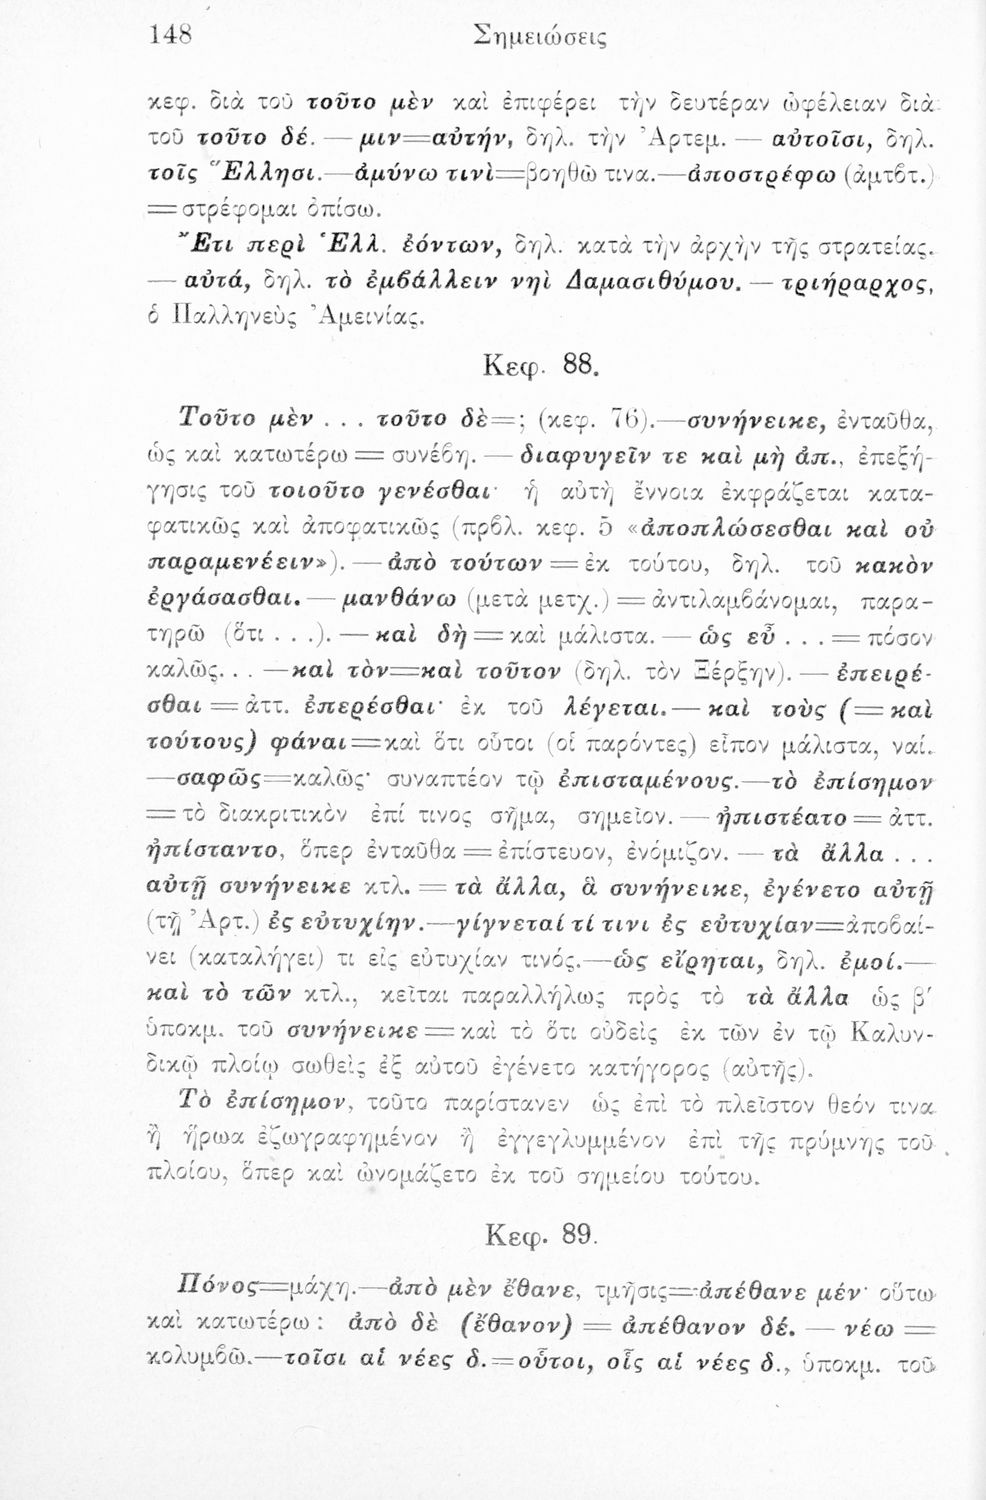 148 Σημειώσεις
κεφ. διὰ τοῦ τοῦτο μὲν καὶ ἐπιφέρει τὴν δευτέραν ὠφέλειαν διὰ
τοῦ τοῦτο δέ. — μιν=αὐτήν, δηλ. τὴν Ἀρτεμ. — αὐτοῖσι, δηλ.
τοῖς Ἕλλησι.—ἀμύνω τινὶ=βοηθῶ τινα.—ἀποστρέφω (ἀμτβτ.)
=στρέφομαι ὀπίσω.
Ἔτι περὶ Ἑλλ. ἐόντων, δηλ. κατὰ τὴν ἀρχὴν τῆς στρατείας.
— αὐτά, δηλ. τὸ ἐμβάλλειν νηὶ Δαμασιθύμου. — τριήραρχος,
ὁ Παλληνεὺς Ἀμεινίας.
Κεφ. 88.
Τοῦτο μὲν . . . τοῦτο δὲ=; (κεφ. 76).—συνήνεικε, ἐνταῦθα,
ὡς καὶ κατωτέρω = συνέβη. — διαφυγεῖν τε καὶ μὴ ἀπ., ἐπεξή-
γησις τοῦ τοιοῦτο γενέσθαι· ἡ αὐτὴ ἔννοια ἐκφράζεται κατα-
φατικῶς καὶ ἀποφατικῶς (πρβλ. κεφ. 5 «ἀποπλώσεσθαι καὶ οὐ
παραμενέειν»). — ἀπὸ τούτων = ἐκ τούτου, δηλ. τοῦ κακὸν
ἐργάσασθαι. — μανθάνω (μετὰ μετχ.) = ἀντιλαμβάνομαι, παρα-
τηρῶ (ὅτι . . .). — καὶ δὴ = καὶ μάλιστα. — ὡς εὖ . . . = πόσον
καλῶς. . . —καὶ τὸν=καὶ τοῦτον (δηλ. τὸν Ξέρξην). — ἐπειρέ-
σθαι = ἀττ. ἐπερέσθαι· ἐκ τοῦ λέγεται.— καὶ τοὺς (= καὶ
τούτους) φάναι=καὶ ὅτι οὗτοι (οἱ παρόντες) εἶπον μάλιστα, ναί.
—σαφῶς=καλῶς· συναπτέον τῷ ἐπισταμένους.—τὸ ἐπίσημον
= τὸ διακριτικὸν ἐπί τινος σῆμα, σημεῖον. — ἠπιστέατο = ἀττ.
ἠπίσταντο, ὅπερ ἐνταῦθα = ἐπίστευον, ἐνόμιζον. — τὰ ἄλλα . . .
αὐτῇ συνήνεικε κτλ. = τὰ ἄλλα, ἃ συνήνεικε, ἐγένετο αὐτῇ
(τῇ Ἀρτ.) ἐς εὐτυχίην.—γίγνεταί τί τινι ἐς εὐτυχίαν=ἀποβαί-
νει (καταλήγει) τι εἰς εὐτυχίαν τινός.—ὡς εἴρηται, δηλ. ἐμοί.—
καὶ τὸ τῶν κτλ., κεῖται παραλλήλως πρὸς τὸ τὰ ἄλλα ὡς β′
ὑποκμ. τοῦ συνήνεικε = καὶ τὸ ὅτι οὐδεὶς ἐκ τῶν ἐν τῷ Καλυν-
δικῷ πλοίῳ σωθεὶς ἐξ αὐτοῦ ἐγένετο κατήγορος (αὐτῆς).
Τὸ ἐπίσημον, τοῦτο παρίστανεν ὡς ἐπὶ τὸ πλεῖστον θεόν τινα
ἢ ἥρωα ἐζωγραφημένον ἢ ἐγγεγλυμμένον ἐπὶ τῆς πρύμνης τοῦ
πλοίου, ὅπερ καὶ ὠνομάζετο ἐκ τοῦ σημείου τούτου.
Κεφ. 89.
Πόνος=μάχη.—ἀπὸ μὲν ἔθανε, τμῆσις=ἀπέθανε μέν· οὕτω
καὶ κατωτέρω : ἀπὸ δὲ (ἔθανον) = ἀπέθανον δέ. — νέω =
κολυμβῶ.—τοῖσι αἱ νέες δ.=οὗτοι, οἷς αἱ νέες δ., ὑποκμ. τοῦ